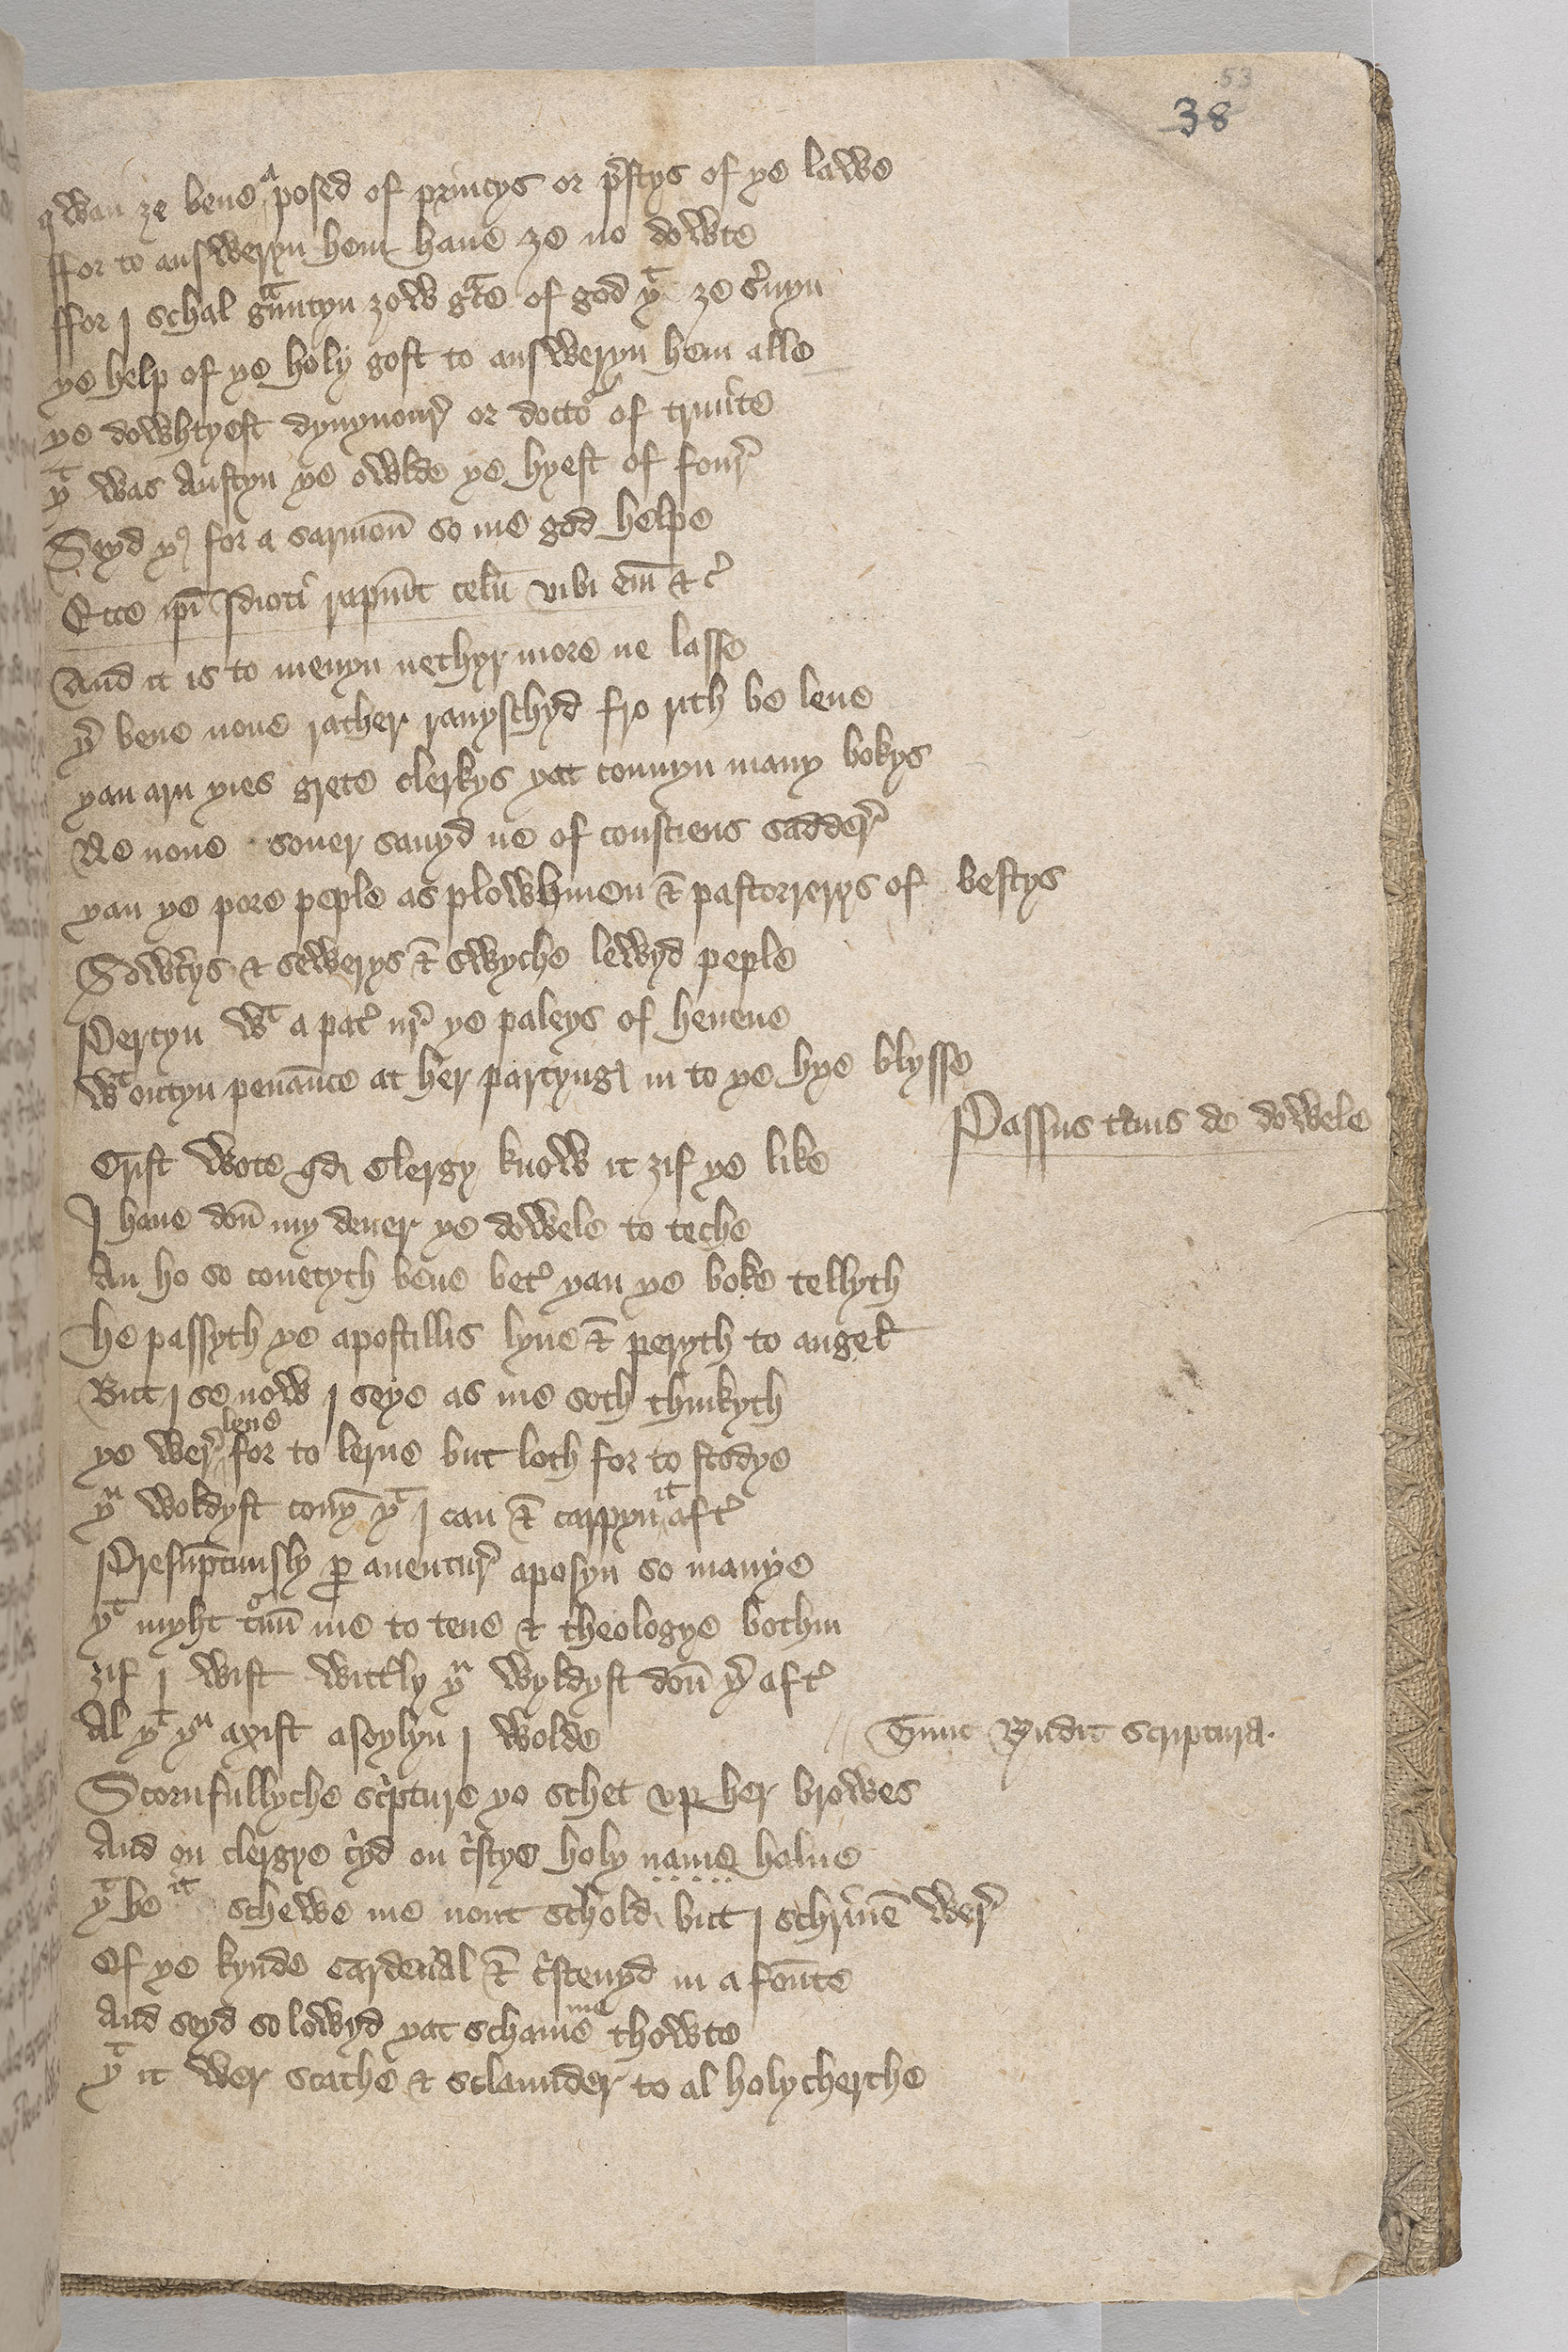 53
38
qwan ze bene aposed of princys or pꝛstys of ye lawe
ffor to answeryn hem haue ze no dowte
ffor I schal gᵃuntyn zow gᵃce of god yᵗ ze sꝛuyn
ye help of ye holy gost to answeryn hem alle
ye dowhtyest dyuynourꝭ or doctoʳ of trinite
yᵗ was Austyn ye owlde ye hyest of fourꝭ
Seyd yꝰ for a sarmoū so me god helpe
Ecce ip̄i Idioti rapiūt celū vibi em̄ & cꝭ
And it is to menyn nethyr more ne lasse
yꝭ bene none rather rauyschyd fro rith be leue
yan arn yies grete clerkys yat connyn many bokys
Ne none souer sauyd ne of consciens sadderꝭ
yan ye pore peple as plowhmen & pastorrerys of bestys
Sowtꝭys & sewerys & swyche lewyd peple
Percyn wᵗ a patꝭ nrꝭ ye paleys of heuene
wᵗ outyn penāunce at her partyng in to ye hye blysse
Passus tꝭcius de dowele
Crist wote qd Clergy know it zif ye like
I haue don̄ my deuer ye dowele to teche
An ho so couetyth bene betꝭ yan ye boke tellyth
He passyth ye apostillis lyue & peryth to angel
But I se now I seye as me soth thinkyth
ye werꝭ leue for to lerne but loth for to stodye
yᵘ woldyst conȳ yᵗ I can & carpyn it aftꝭ
Presūptuusly ꝑ auenturꝭ aposyn so manye
yᵗ myht tᵒun̄ me to tene & theologye bothin
zif I wist wittꝭly yᵘ wyldyst don̄ yꝭ aftꝭ
Al yᵗ yᵘ axist aseylyn I wolde
// Tunc Rndit scriptura.
Scornfullyche scꝭpture yo schet vp her browes
And on clergye cꝭyd on cꝭstye holy name halue
yᵗ he it schewe me nout schold but I schrīuē werꝭ
Of ye kynde cardenal & cꝭstenyd in a foūte
And seyd so lowyd yat schame me thowte
yᵗ it wer scathe & sclaunder to al holycherche